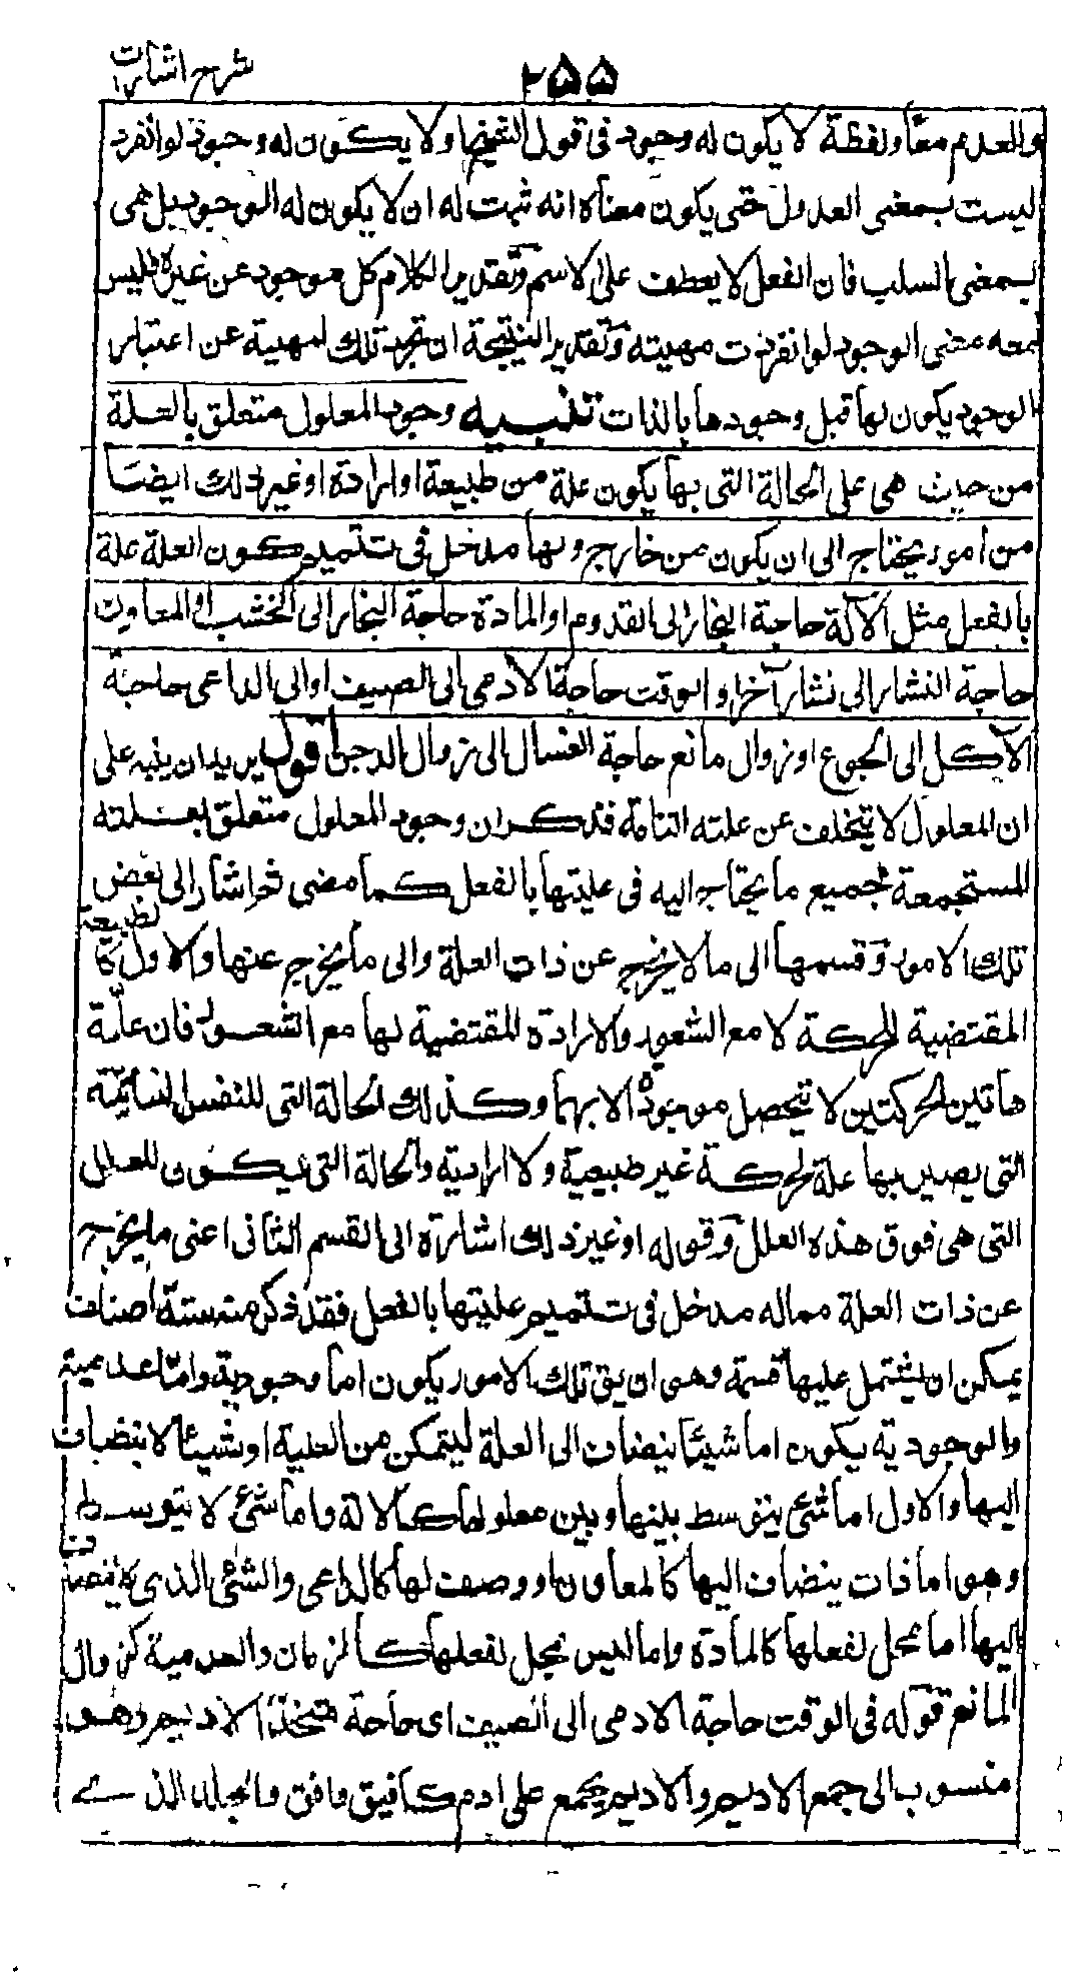 شرح اشارات
٢٥٥
والعدم معاً ولفظة لا يكون له وجود فى قول الشيخ او لا يكون له وجود لو انفرد
ليست بمعنى العدول حتى يكون معناه انه ثبت له ان لا يكون له الوجود بل هى
بمعنى السلب فان الفعل لا يعطف على الاسم وتقدير الكلام كل موجود عن غيره فليس
معه معنى الوجود لو انفردت مهيته وتقدير النتيجة ان تجرد تلك المهية عن اعتبار
الوجود يكون لها قبل وجودها بالذات تنبيه وجود المعلول متعلق بالعلة
من حيث هى على الحالة التى بها يكون علة من طبيعة او ارادة او غير ذلك ايضا
من امور يحتاج الى ان يكون من خارج ولها مدخل فى تتميم كون العلة علة
بالفعل مثل الآلة حاجة النجار الى القدوم او المادة حاجة النجار الى الخشب او المعاون
حاجة النشار الى نشار آخر او الوقت حاجة الادمى الى الصيف او الى الداعى حاجة
الآكل الى الجوع او زوال مانع حاجة الغسال الى زوال الدجن اقول يريد ان ينبه على
ان المعلول لا يتخلف عن علته التامة فذكر ان وجود المعلول متعلق بعلته
المستجمعة لجميع ما يحتاج اليه فى عليتها بالفعل كما مضى ثم اشار الى بعض
تلك الامور وقسمها الى ما لا يخرج عن ذات العلة والى ما يخرج عنها والاول كالطبيعة
المقتضية للحركة لا مع الشعور والارادة المقتضية لها مع الشعور فان علّة
هاتين الحركتين لا تتحصل موجودة الا بهما وكذلك الحالة التى للنفس النباتية
التى يصير بها علة لحركة غير طبيعية ولا ارادية والحالة التى يكون للعلل
التى هى فوق هذه العلل وقوله او غير ذلك اشارة الى القسم الثانى اعنى ما يخرج
عن ذات العلة مما له مدخل فى تتميم عليتها بالفعل فقد ذكر منه ستة اصناف
يمكن ان يشتمل عليها قسمة وهى ان يق تلك الامور يكون اما وجودية واما عدمية
والوجودية يكون اما شيئا ينضاف الى العلة ليتمكن من العلية او شيئا لا ينضاف
اليها والاول اما شئ يتوسط بينها وبين معلولها كالالة واما شئ لا يتوسط
وهو اما ذات ينضاف اليها كالمعاون او وصف لها كالداعى والشئ الذى لا ينضاف
اليها اما محل لفعلها كالمادة واما ليس بمحل لفعلها كالزمان والعدمية كزوال
المانع قوله فى الوقت حاجة الادمى الى الصيف اى حاجة متخذ الاديم وهو
منسوب الى جمع الاديم والاديم يجمع على ادم كافيق وافق والجلد الذى